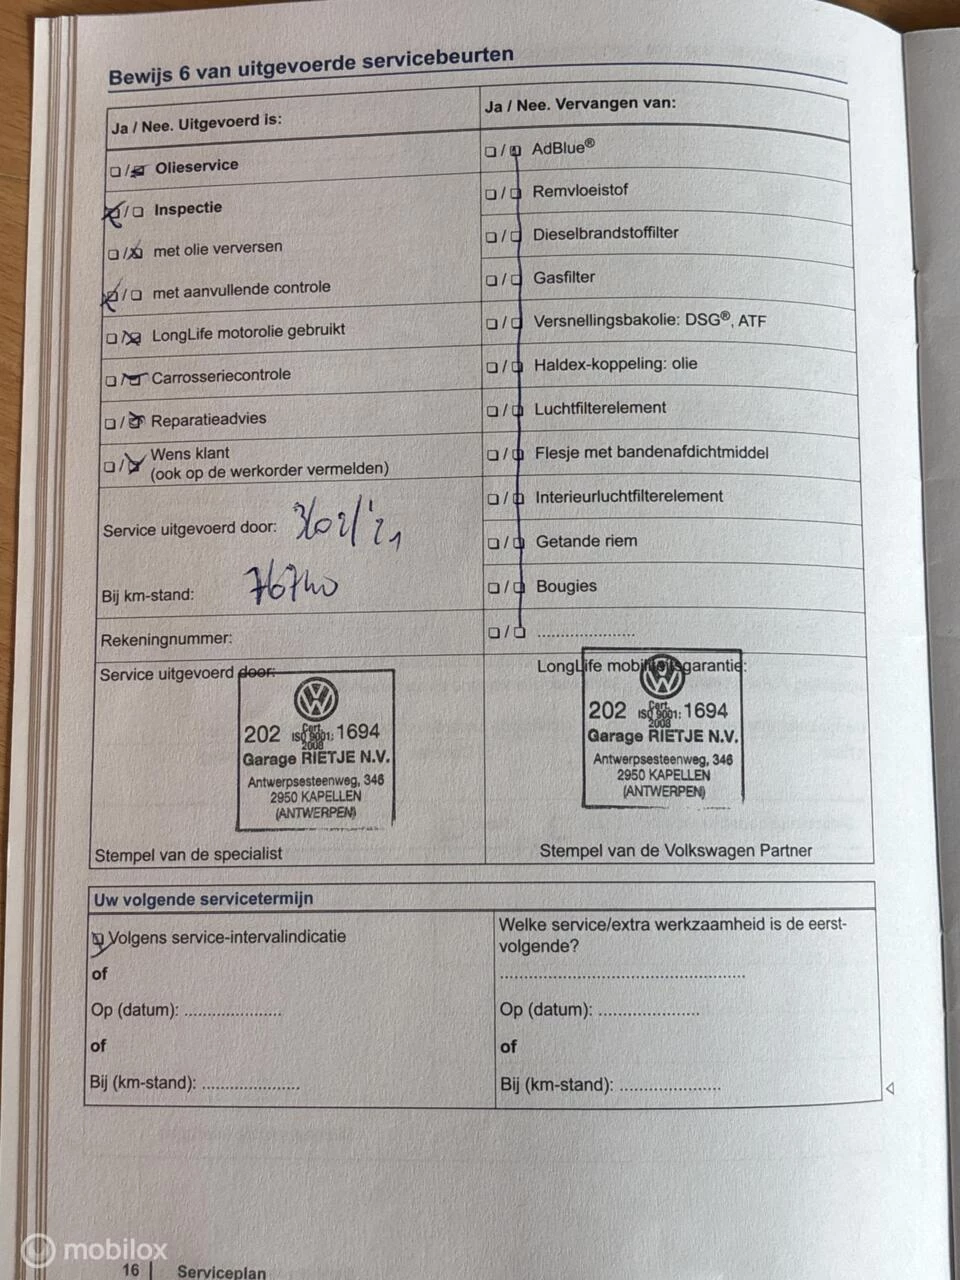 Bewijs 6 van uitgevoerde servicebeurten
Ja / Nee. Uitgevoerd is:
Olieservice
Inspectie
met olie verversen
met aanvullende controle
LongLife motorolie gebruikt
Carrosseriecontrole
Reparatieadvies
Wens klant
(ook op de werkorder vermelden)
Service uitgevoerd door:
Bij km-stand:
Rekeningnummer:
Service uitgevoerd door:
202 Cert. ISO 9001: 2008 1694
Garage RIETJE N.V.
Antwerpsesteenweg, 346
2950 KAPELLEN
(ANTWERPEN)
Stempel van de specialist
Ja / Nee. Vervangen van:
AdBlue®
Remvloeistof
Dieselbrandstoffilter
Gasfilter
Versnellingsbakolie: DSG®, ATF
Haldex-koppeling: olie
Luchtfilterelement
Flesje met bandenafdichtmiddel
Interieurluchtfilterelement
Getande riem
Bougies
....................
LongLife mobiliteitsgarantie:
202 Cert. ISO 9001: 2008 1694
Garage RIETJE N.V.
Antwerpsesteenweg, 346
2950 KAPELLEN
(ANTWERPEN)
Stempel van de Volkswagen Partner
Uw volgende servicetermijn
Volgens service-intervalindicatie
of
Op (datum): ....................
of
Bij (km-stand): ....................
Welke service/extra werkzaamheid is de eerst-
volgende?
..................................................
Op (datum): ....................
of
Bij (km-stand): ....................
16 | Serviceplan
mobilox